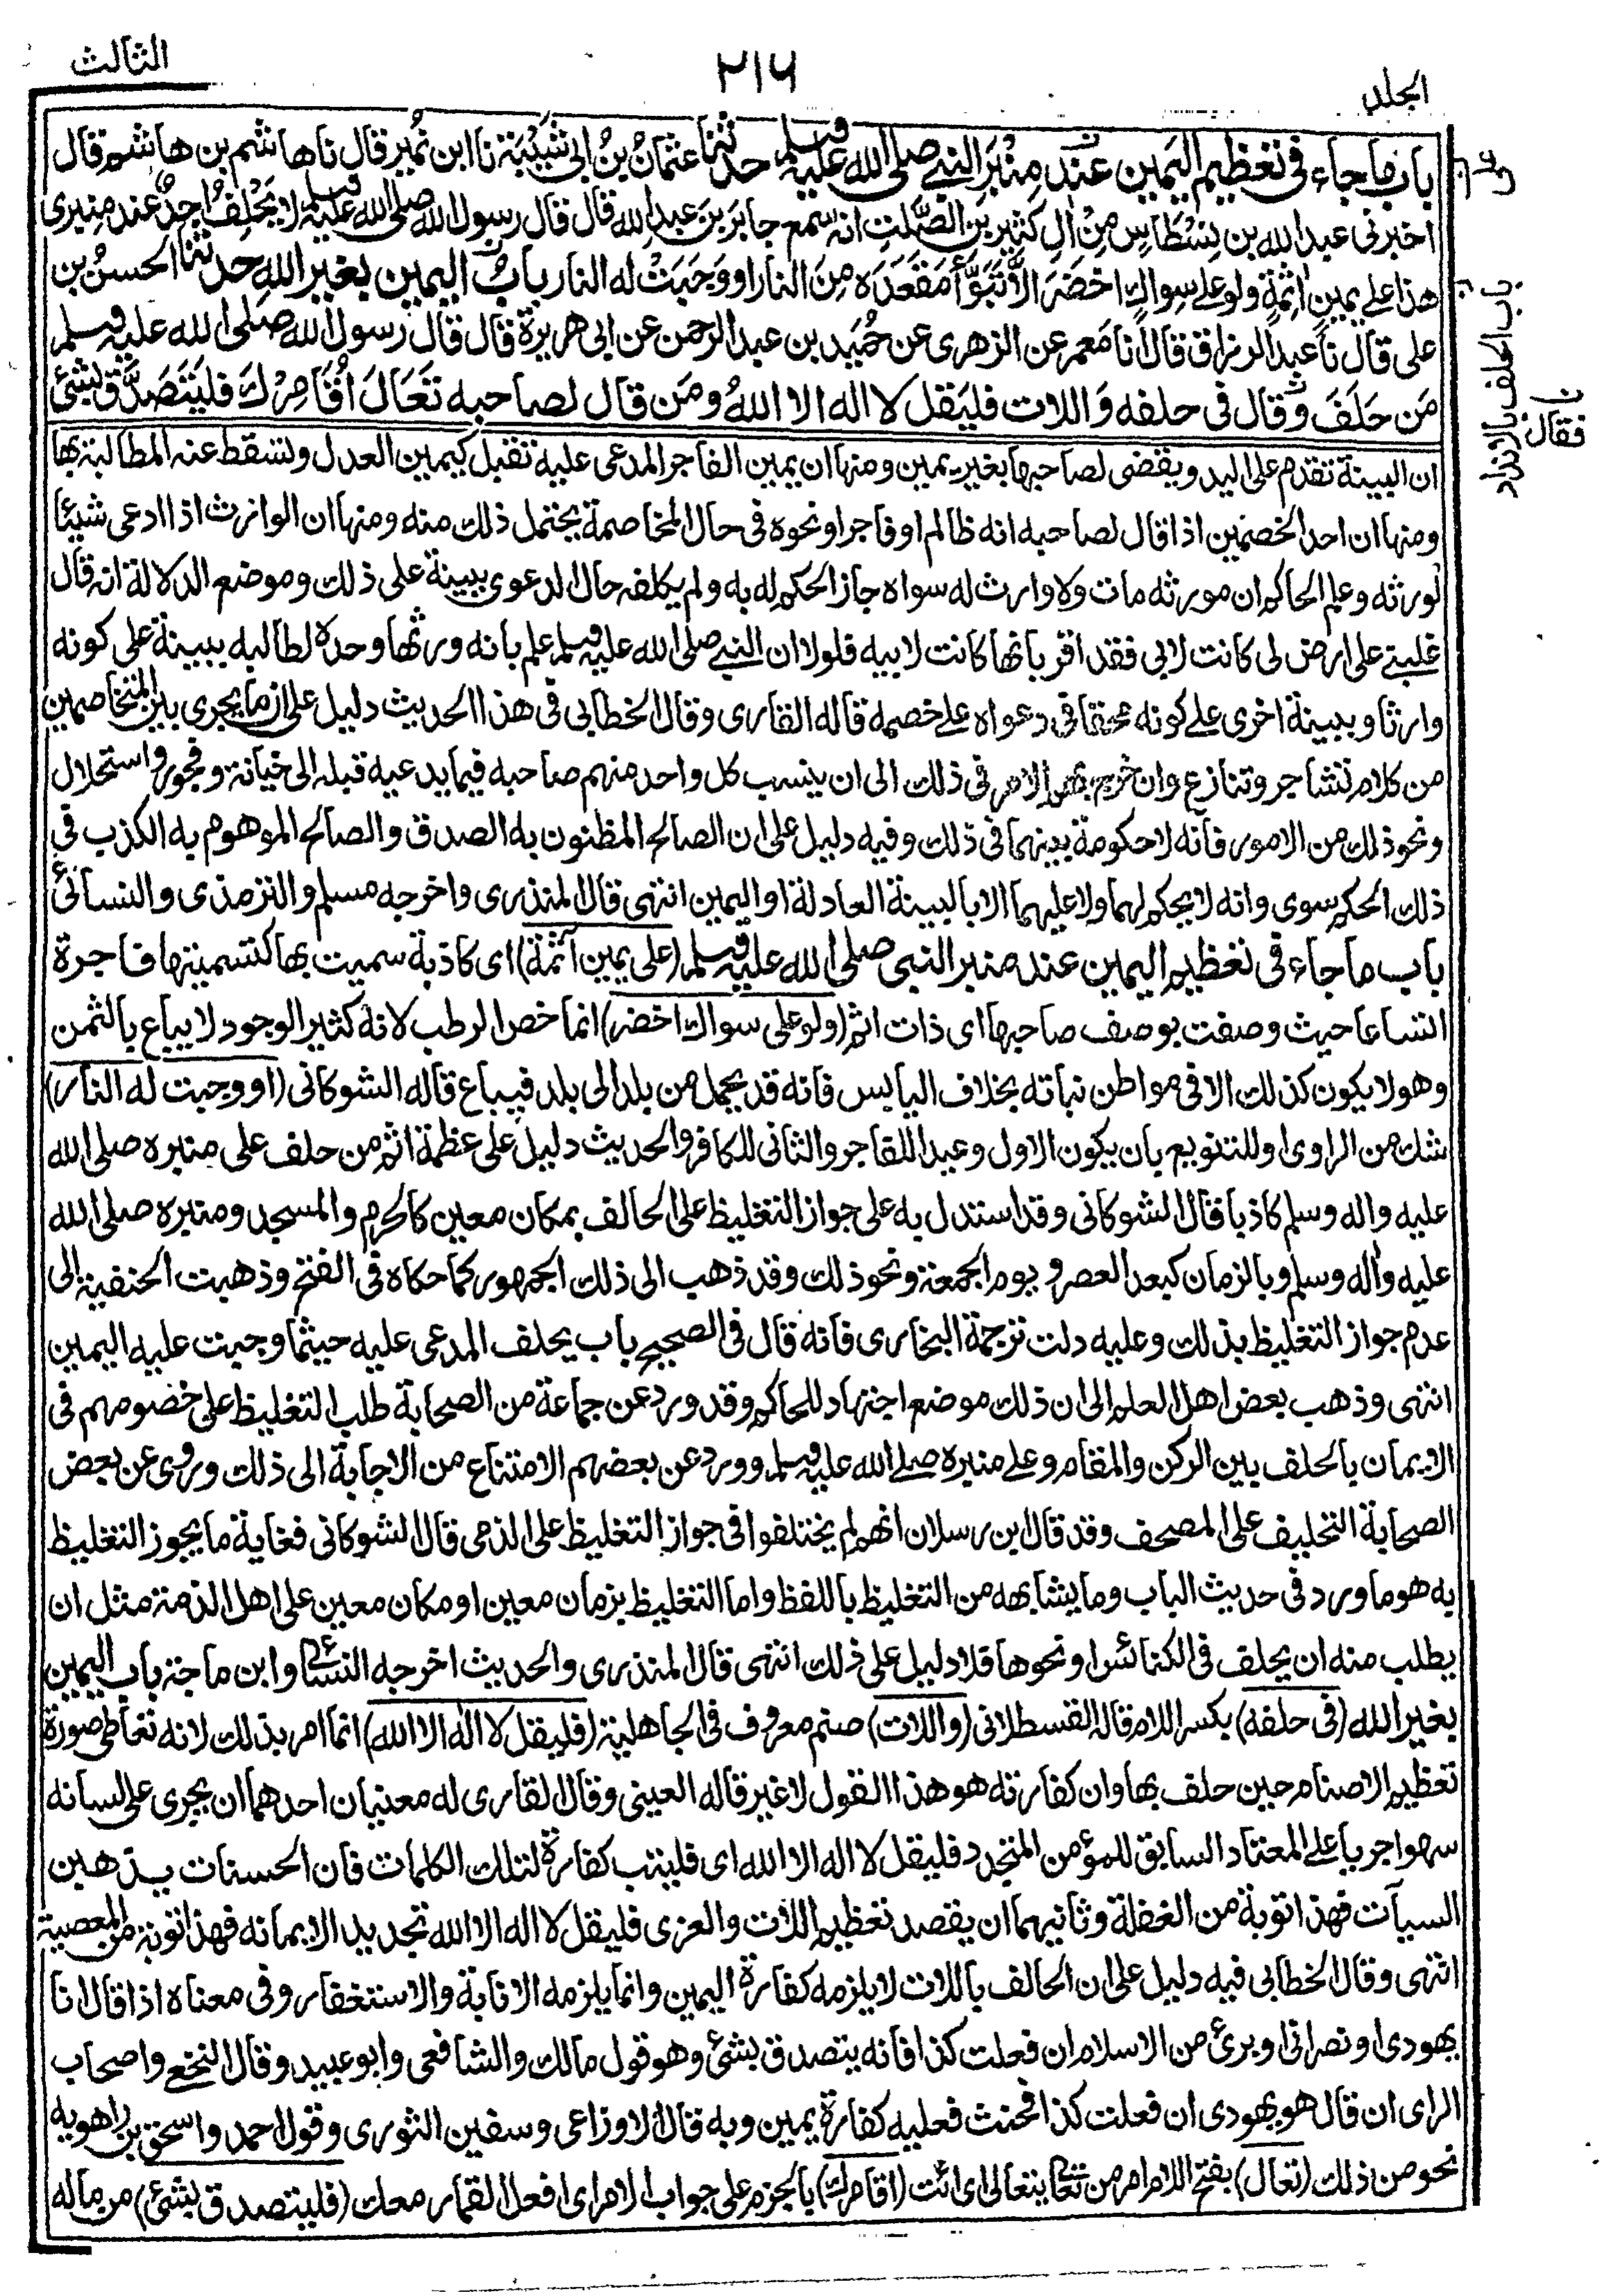 الجلد
٢١٦
الثالث
باب ما جاء في تعظيم اليمين عند منبر النبي صلى الله عليه وسلم حدثنا عثمان بن ابي شيبة نا ابن نمير قال نا هاشم بن هاشم قال
اخبرني عبد الله بن نسطاس من ال كثير بن الصلت انه سمع جابر بن عبد الله قال قال رسول الله صلى الله عليه وسلم لا يحلف احد عند منبري
هذا على يمين اثمة ولو على سواك اخضر الا تبوأ مقعده من النار او وجبت له النار باب اليمين بغير الله حدثنا الحسن بن
على قال نا عبد الرزاق قال انا معمر عن الزهرى عن حميد بن عبد الرحمن عن ابى هريرة قال قال رسول الله صلى الله عليه وسلم
من حلف وقال فى حلفه واللات فليقل لا اله الا الله ومن قال لصاحبه تعال اقامرك فليتصدق بشئ
باب الحلف بالانداد
فقال
ان البينة تقدم على اليد ويقضى لصاحبها بغير يمين ومنها ان يمين الفاجر المدعى عليه تقبل كيمين العدل وتسقط عنه المطالبة بها
ومنها ان احد الخصمين اذا قال لصاحبه انه ظالم او فاجر او نحوه فى حال المخاصمة يحتمل ذلك منه ومنها ان الوارث اذا ادعى شيئا
لورثه وعلم الحاكم ان مورثه مات ولا وارث له سواه جاز الحكم له به ولم يكلفه حال الدعوى ببينة على ذلك وموضع الدلالة انه قال
غلبنى على ارض لى كانت لابى فقد اقر بانها كانت لابيه فلولا ان النبى صلى الله عليه وسلم علم بانه ورثها وحده لطالبه ببينة على كونه
وارثا وببينة اخرى على كونه محقا فى دعواه على خصمه قاله القارى وقال الخطابى فى هذا الحديث دليل على ان ما يجرى بين المتخاصمين
من كلام تشاجر وتنازع وان خرج بهم الامر فى ذلك الى ان ينسب كل واحد منهم صاحبه فيما يدعيه قبله الى خيانة وفجور واستحلال
ونحو ذلك من الامور فانه لا حكومة بينهما فى ذلك وفيه دليل على ان الصالح المظنون به الصدق والصالح الموهوم به الكذب فى
ذلك الحكم سوى وانه لا يحكم لهما ولا عليهما الا بالبينة العادلة او اليمين انتهى قال المنذرى واخرجه مسلم والترمذى والنسائى
باب ما جاء فى تعظيم اليمين عند منبر النبى صلى الله عليه وسلم (على يمين آثمة) اى كاذبة سميت بها كتسميتها فاجرة
اتساعا حيث وصفت بوصف صاحبها اى ذات اثم (ولو على سواك اخضر) انما خص الرطب لانه كثير الوجود لا يباع بالثمن
وهو لا يكون كذلك الا فى مواطن نباته بخلاف اليابس فانه قد يحمل من بلد الى بلد فيباع قاله الشوكانى (او وجبت له النار)
شك من الراوى او للتنويع بان يكون الاول وعيدا للفاجر والثانى للكافر والحديث دليل على عظمة اثم من حلف على منبره صلى الله
عليه واله وسلم كاذبا قال الشوكانى وقد استدل به على جواز التغليظ على الحالف بمكان معين كالحرم والمسجد ومنبره صلى الله
عليه واله وسلم وبالزمان كبعد العصر و يوم الجمعة ونحو ذلك وقد ذهب الى ذلك الجمهور كما حكاه فى الفتح وذهبت الحنفية الى
عدم جواز التغليظ بذلك وعليه دلت ترجمة البخارى فانه قال فى الصحيح باب يحلف المدعى عليه حيثما وجبت عليه اليمين
انتهى وذهب بعض اهل العلم الى ان ذلك موضع اجتهاد للحاكم وقد ورد عن جماعة من الصحابة طلب التغليظ على خصومهم فى
الايمان بالحلف بين الركن والمقام وعلى منبره صلى الله عليه وسلم وورد عن بعضهم الامتناع من الاجابة الى ذلك وروى عن بعض
الصحابة التحليف على المصحف وقد قال ابن رسلان انهم لم يختلفوا فى جواز التغليظ على الذمى قال الشوكانى فغاية ما يجوز التغليظ
به هو ما ورد فى حديث الباب وما يشابهه من التغليظ باللفظ واما التغليظ بزمان معين او مكان معين على اهل الذمة مثل ان
يطلب منه ان يحلف فى الكنائس او نحوها فلا دليل على ذلك انتهى قال المنذرى والحديث اخرجه النسائى وابن ماجة باب اليمين
بغير الله (فى حلفه) بكسر اللام قاله القسطلانى (واللات) صنم معروف فى الجاهلية (فليقل لا اله الا الله) انما امر بذلك لانه تعاطى صورة
تعظيم الاصنام حين حلف بها وان كفارته هو هذا القول لا غير قاله العينى وقال القارى له معنيان احدهما ان يجرى على لسانه
سهوا جريا على المعتاد السابق للمؤمن المتجدد فليقل لا اله الا الله اى فليتب كفارة لتلك الكلمات فان الحسنات يذهبن
السيآت فهذا توبة من الغفلة وثانيهما ان يقصد تعظيم اللات والعزى فليقل لا اله الا الله تجديد الايمانه فهذا توبة من المعصية
انتهى وقال الخطابى فيه دليل على ان الحالف باللات لا يلزمه كفارة اليمين وانما يلزمه الانابة والاستغفار وفى معناه اذا قال انا
يهودى او نصرانى او برئ من الاسلام ان فعلت كذا فانه يتصدق بشئ وهو قول مالك والشافعى وابو عبيد وقال النخعى واصحاب
الراى ان قال هو يهودى ان فعلت كذا فحنث فعليه كفارة يمين وبه قال الاوزاعى وسفين الثورى وقول احمد واسحق بن راهويه
نحو من ذلك (تعال) بفتح اللام امر من تعالى يتعالى اى ائت (اقامرك) بالجزم على جواب الامر اى افعل القمار معك (فليتصدق بشئ) من ماله